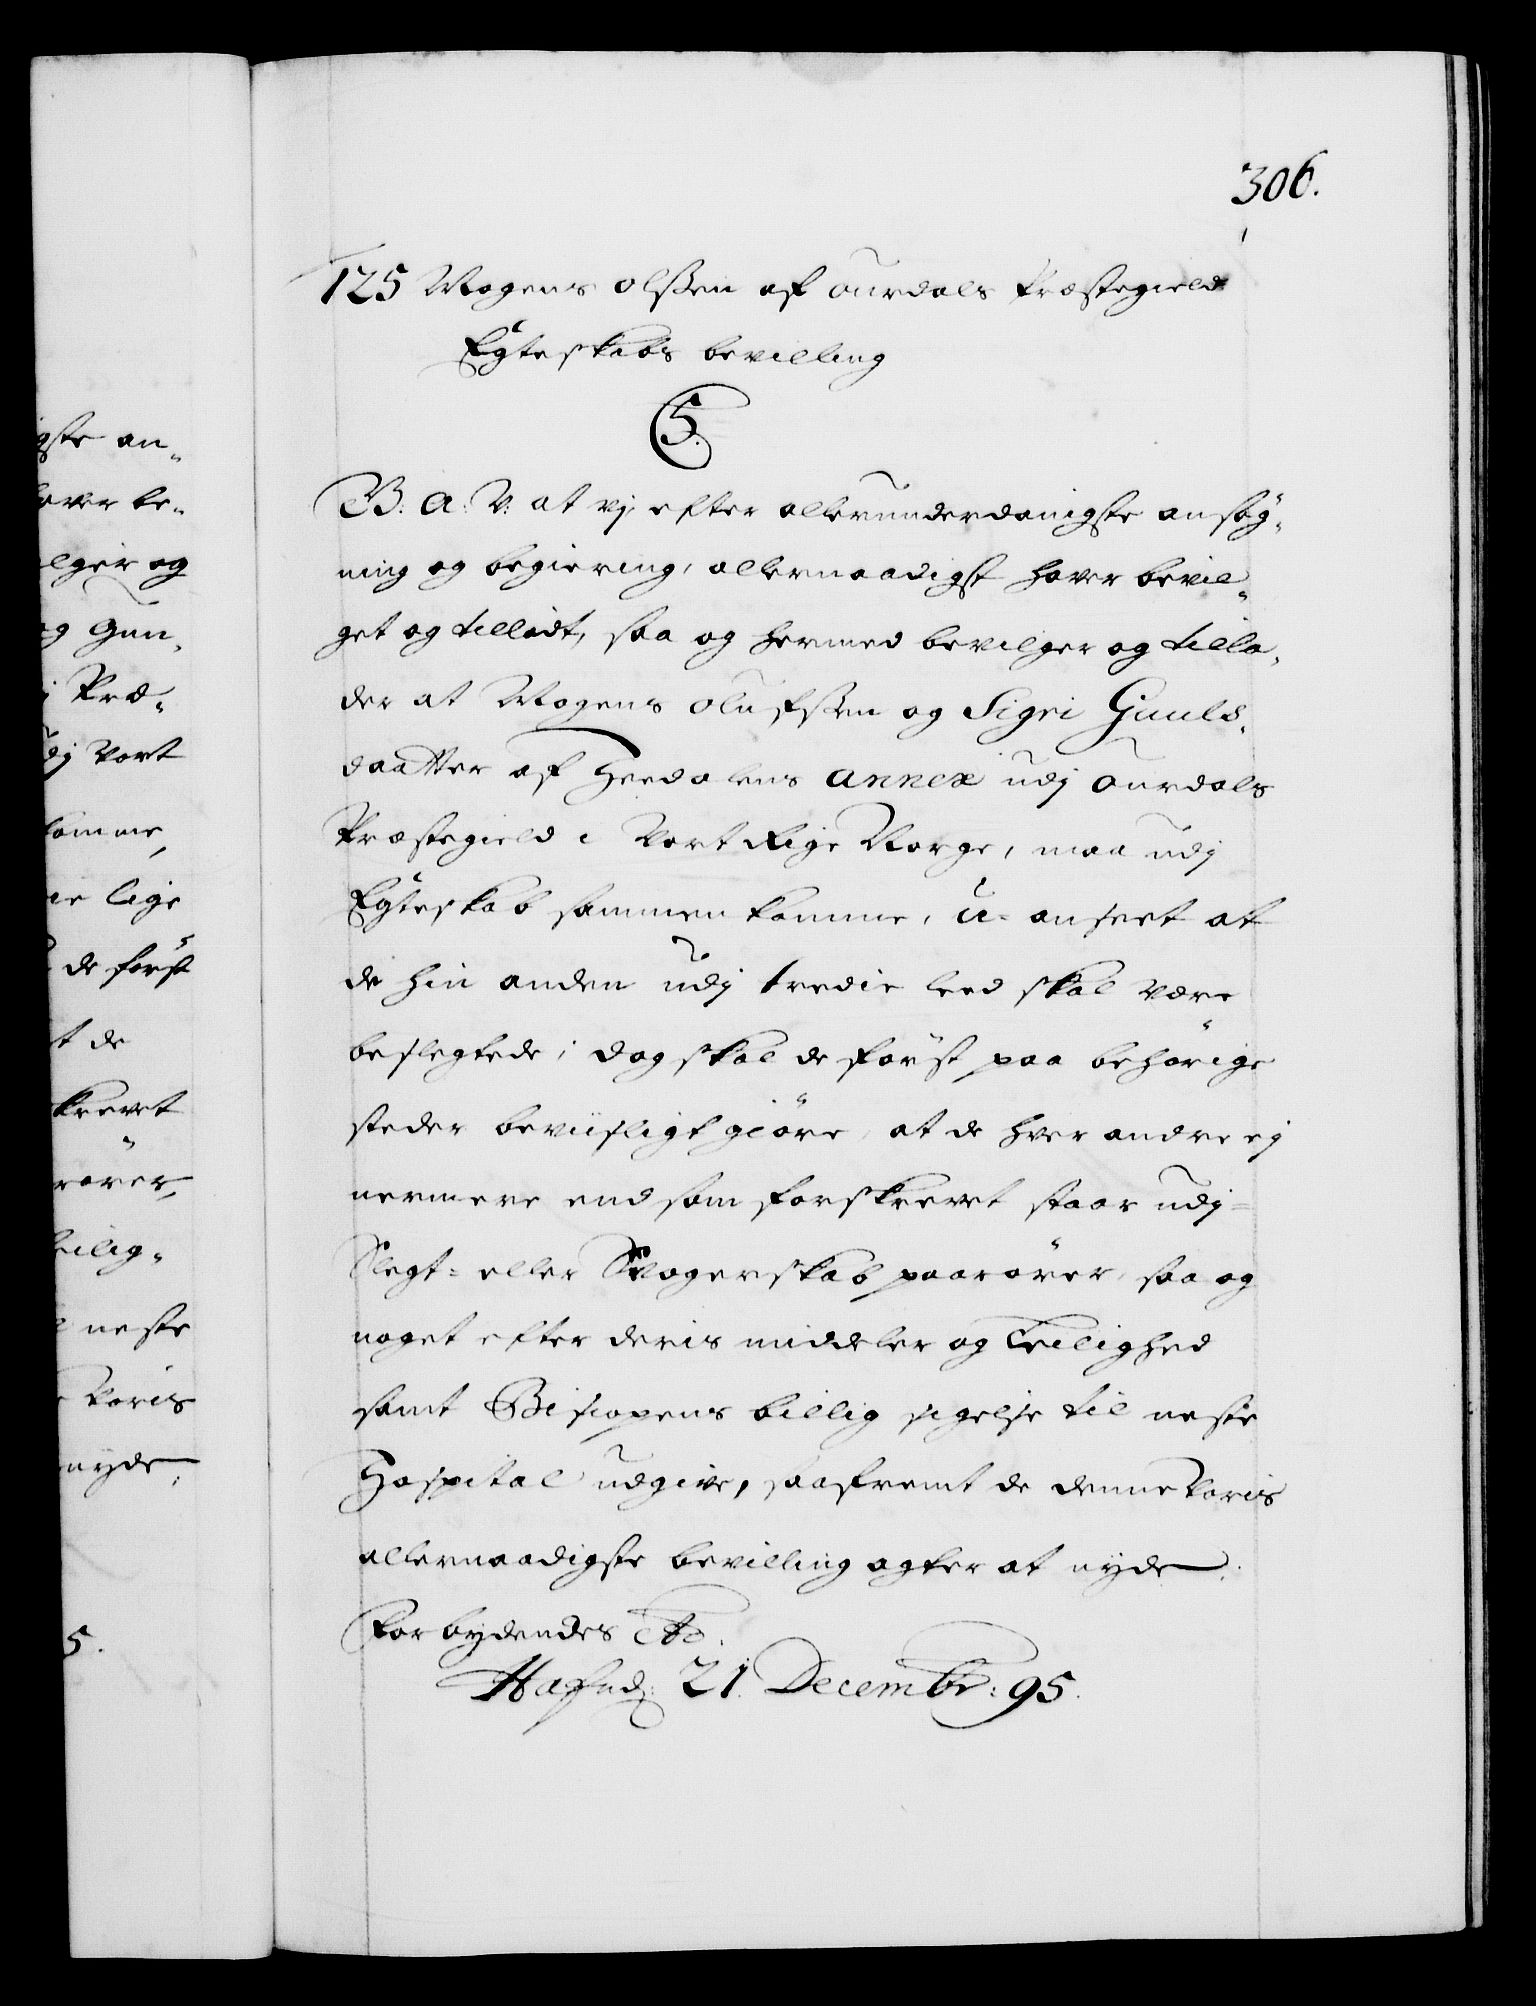 306.
125 Mogens Olssen af Ourdals Præstegield
Egteskabs bevilling
C5.
B: A: V: at vj efter allerunderdanigste ansög„
ning og begiering, allernaadigst haver bevil„
get og tilladt, saa og hermed bevilger og tilla„
der at Mogens Olufssen og Sigri Gunls„
daatter af Hedalens annex udj Ourdals
Præstegield i Vort Rige Norge, maa udj
Egteskab sammen komme, u-anseet at
de hin anden udj tredie leed skal være
beslegtede; dog skal de först paa behörige
steder beviisligt giöre, at de hver andre ej
nermere end som forskrevet staar udj=
Slegt= eller Svogerskab paarörer, saa og
noget efter deris middeler og Leilighed
samt Biscopens billig sigelse til neste
Hospital udgive, saafremt de denne Voris
allernaadigste bevilling agter at nyde.
Forbydendes etc.
Hafnd: 21. Decembr: 95.
gste an„
haver be„
lger og
og Gun„
j Præ„
udj Vort
komme,
lige
de först
t de
skrevet
rörer,
eilig„
neste
Voris
nyde.
5.